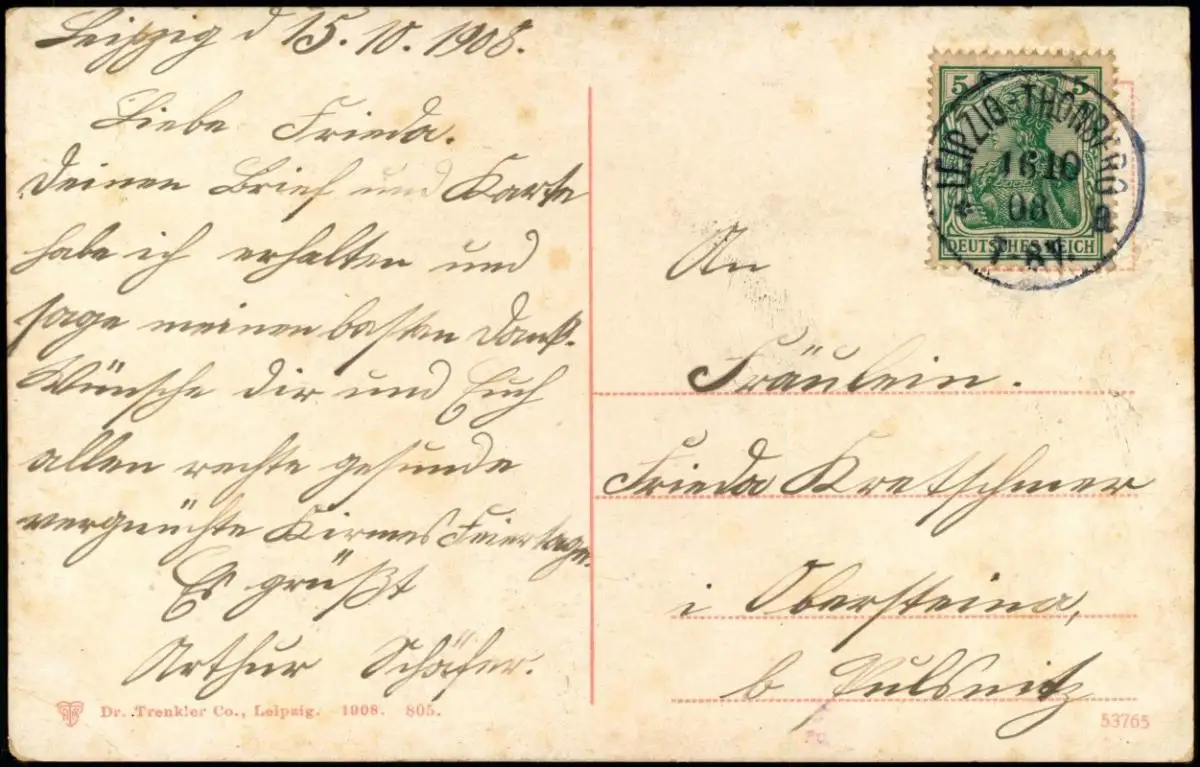 Leipzig d 15.10.1908.
Liebe Frieda.
Deinen Brief und Karte
habe ich erhalten und
sage meinen besten Dank.
Wünsche dir und Euch
allen rechte gesunde
vergnüchte Kirmes Feiertage.
Es grüßt
Arthur Schäfer.
Dr. Trenkler Co., Leipzig. 1908. 805.
5 5
LEIPZIG-THONBERG
16 10
08
7-8V.
a
DEUTSCHES REICH
An
Fräulein.
Frieda Kretschmer
i Obersteina,
b Pulsnitz
53765